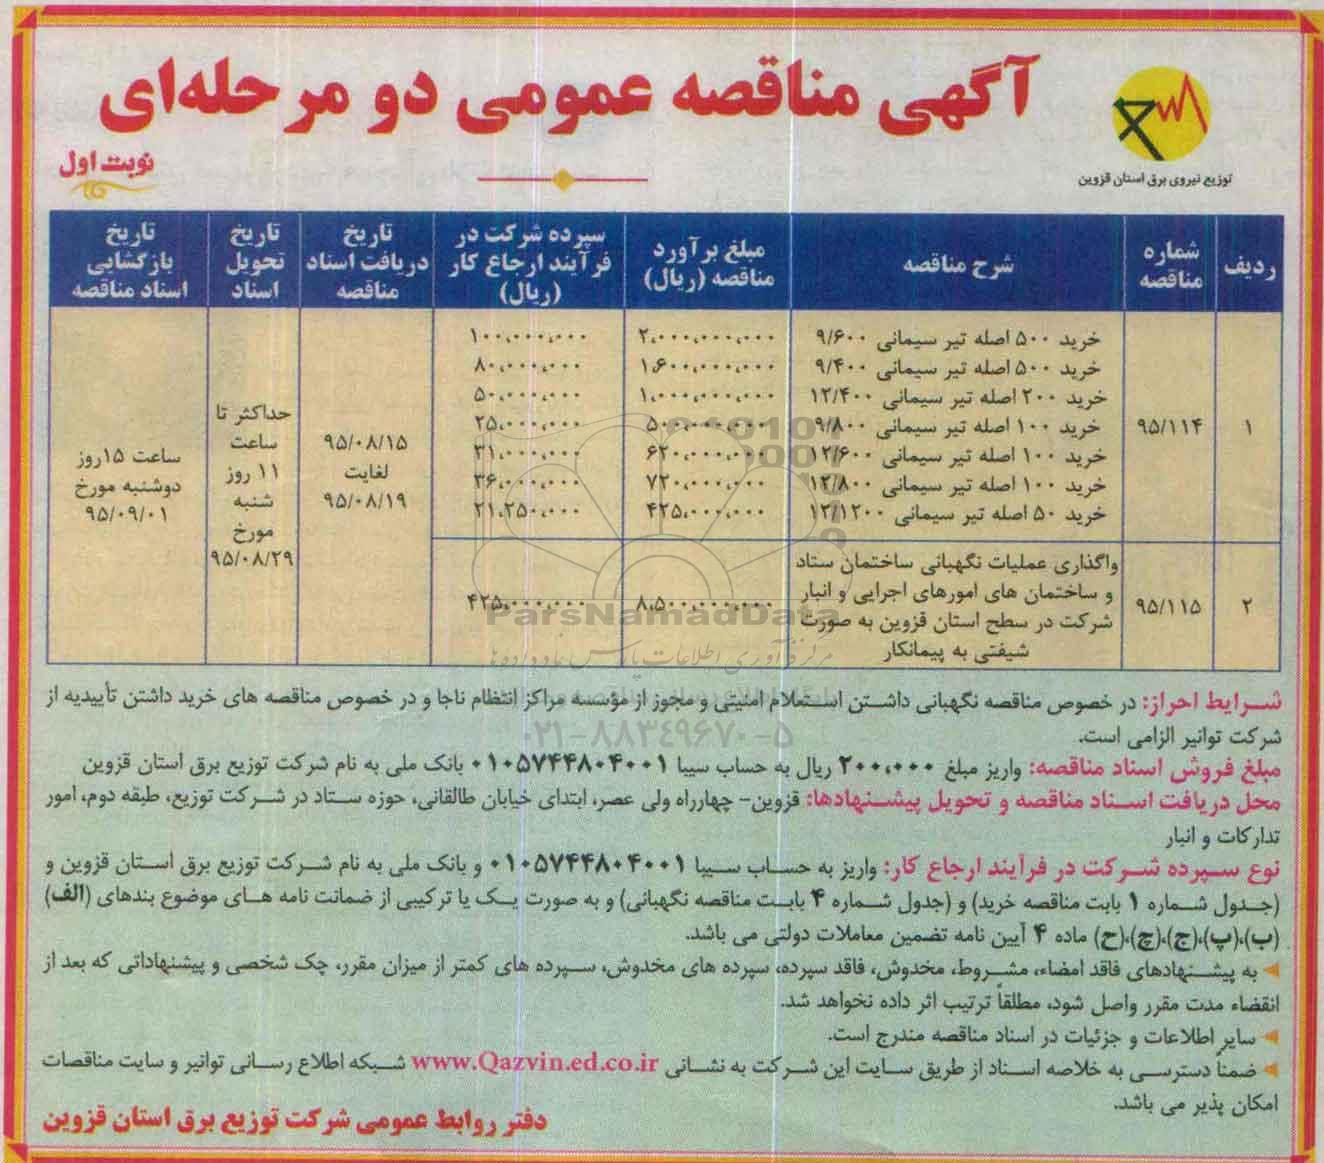 آگهی مناقصه عمومی دو مرحله‌ای
نوبت اول
توزیع نیروی برق استان قزوین
ردیف | شماره مناقصه | شرح مناقصه | مبلغ برآورد مناقصه (ریال) | سپرده شرکت در فرآیند ارجاع کار (ریال) | تاریخ دریافت اسناد مناقصه | تاریخ تحویل اسناد | تاریخ بازگشایی اسناد مناقصه
۱ | ۹۵/۱۱۴
خرید ۵۰۰ اصله تیر سیمانی ۹/۶۰۰ | ۲،۰۰۰،۰۰۰،۰۰۰ | ۱۰۰،۰۰۰،۰۰۰
خرید ۵۰۰ اصله تیر سیمانی ۹/۴۰۰ | ۱،۶۰۰،۰۰۰،۰۰۰ | ۸۰،۰۰۰،۰۰۰
خرید ۲۰۰ اصله تیر سیمانی ۱۲/۴۰۰ | ۱،۰۰۰،۰۰۰،۰۰۰ | ۵۰،۰۰۰،۰۰۰
خرید ۱۰۰ اصله تیر سیمانی ۹/۸۰۰ | ۵۰۰،۰۰۰،۰۰۰ | ۲۵،۰۰۰،۰۰۰
خرید ۱۰۰ اصله تیر سیمانی ۱۲/۶۰۰ | ۶۲۰،۰۰۰،۰۰۰ | ۳۱،۰۰۰،۰۰۰
خرید ۱۰۰ اصله تیر سیمانی ۱۲/۸۰۰ | ۷۲۰،۰۰۰،۰۰۰ | ۳۶،۰۰۰،۰۰۰
خرید ۵۰ اصله تیر سیمانی ۱۲/۱۲۰۰ | ۴۲۵،۰۰۰،۰۰۰ | ۲۱،۲۵۰،۰۰۰
۲ | ۹۵/۱۱۵
واگذاری عملیات نگهبانی ساختمان ستاد
و ساختمان های امورهای اجرایی و انبار
شرکت در سطح استان قزوین به صورت
شیفتی به پیمانکار
۸،۵۰۰،۰۰۰،۰۰۰ | ۴۲۵،۰۰۰،۰۰۰
۹۵/۰۸/۱۵
لغایت
۹۵/۰۸/۱۹
حداکثر تا
ساعت
۱۱ روز
شنبه
مورخ
۹۵/۰۸/۲۹
ساعت ۱۵روز
دوشنبه مورخ
۹۵/۰۹/۰۱
ParsNamadData
مرکز فرآوری اطلاعات پارس نماد داده ها
۰۲۱-۸۸۳۴۹۶۷۰-۵
شرایط احراز: در خصوص مناقصه نگهبانی داشتن استعلام امنیتی و مجوز از مؤسسه مراکز انتظام ناجا و در خصوص مناقصه های خرید داشتن تأییدیه از
شرکت توانیر الزامی است.
مبلغ فروش اسناد مناقصه: واریز مبلغ ۲۰۰،۰۰۰ ریال به حساب سیبا ۰۱۰۵۷۴۴۸۰۴۰۰۱ بانک ملی به نام شرکت توزیع برق استان قزوین
محل دریافت اسناد مناقصه و تحویل پیشنهادها: قزوین- چهارراه ولی عصر، ابتدای خیابان طالقانی، حوزه ستاد در شرکت توزیع، طبقه دوم، امور
تدارکات و انبار
نوع سپرده شرکت در فرآیند ارجاع کار: واریز به حساب سیبا ۰۱۰۵۷۴۴۸۰۴۰۰۱ و بانک ملی به نام شرکت توزیع برق استان قزوین و
(جدول شماره ۱ بابت مناقصه خرید) و (جدول شماره ۴ بابت مناقصه نگهبانی) و به صورت یک یا ترکیبی از ضمانت نامه های موضوع بندهای (الف)
(ب)،(پ)،(ج)،(چ)،(ح) ماده ۴ آیین نامه تضمین معاملات دولتی می باشد.
به پیشنهادهای فاقد امضاء، مشروط، مخدوش، فاقد سپرده، سپرده های مخدوش، سپرده های کمتر از میزان مقرر، چک شخصی و پیشنهاداتی که بعد از
انقضاء مدت مقرر واصل شود، مطلقاً ترتیب اثر داده نخواهد شد.
سایر اطلاعات و جزئیات در اسناد مناقصه مندرج است.
ضمناً دسترسی به خلاصه اسناد از طریق سایت این شرکت به نشانی www.Qazvin.ed.co.ir شبکه اطلاع رسانی توانیر و سایت مناقصات
امکان پذیر می باشد.
دفتر روابط عمومی شرکت توزیع برق استان قزوین